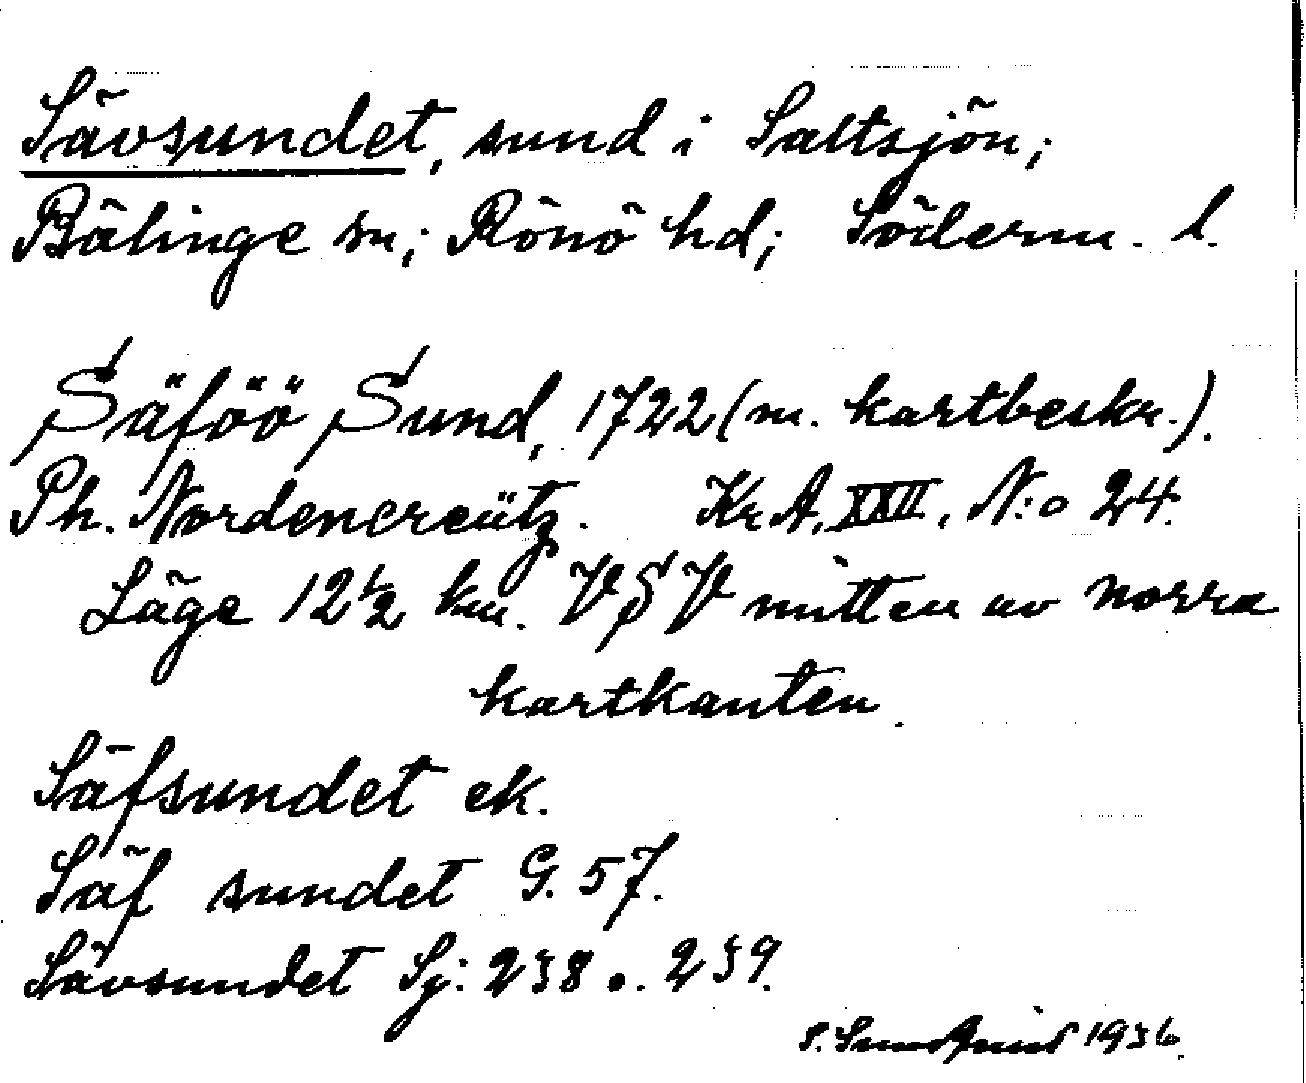 Sävsundet, sund i Saltsjön;
Bälinge sn; Rönö hd; Söderm. l.
Säföö Sund, 1722 (m. kartbeskr.).
Ph. Nordencreütz. Kr. A. XXII, N:o 24.
Läge 12 1/2 km. VSV mitten av norra
kartkanten.
Säfsundet ek.
Säf sundet G. 57.
Sävsundet Sj: 238 o. 239.
S. Sundquist 1936.